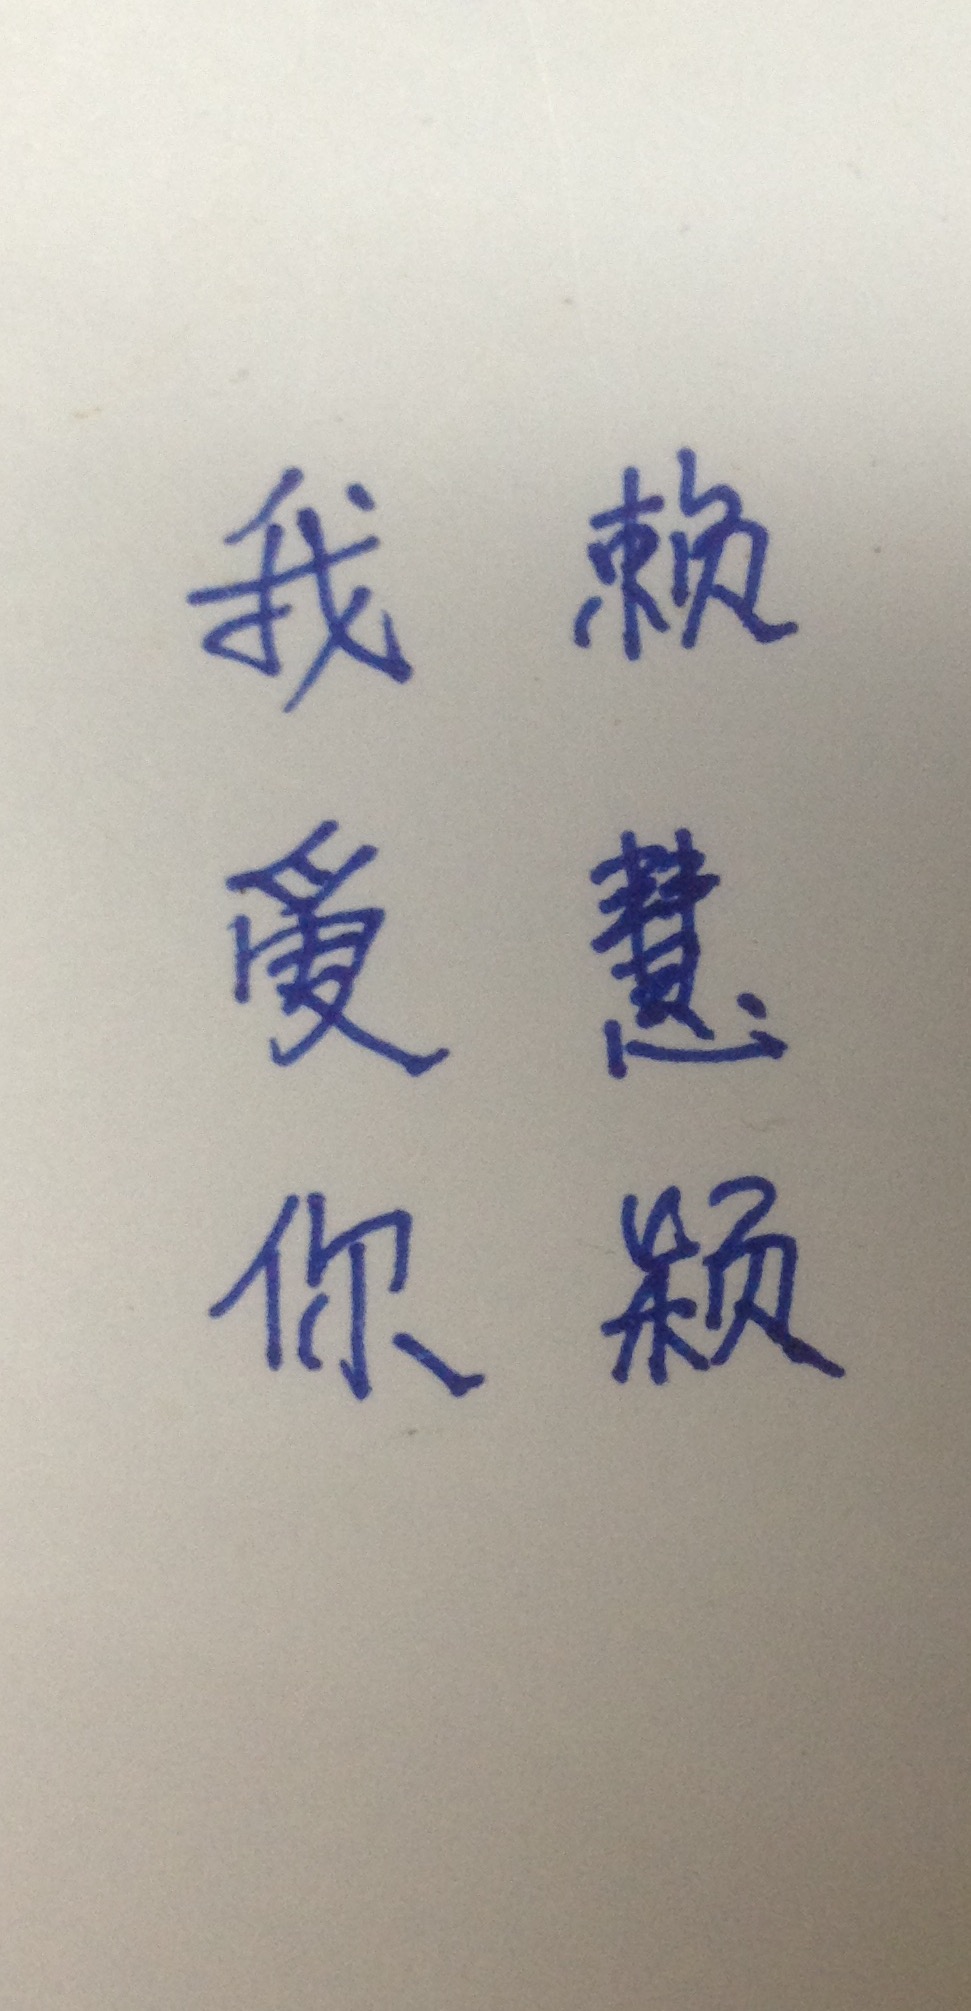 赖慧颖
我爱你